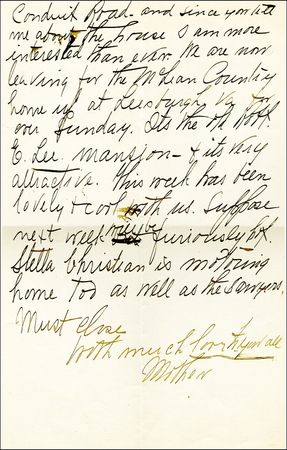 Conduit Road - and since you tell
me about the house I am more
interested than ever. We are now
leaving for the McLean Country
home up at Leesburgh Va for
over Sunday. Its the old Robt.
E. Lee. mansion - & its very
attractive. This week has been
lovely & cool with us. Suppose
next week furiously hot.
Stella Christian is motoring
home Tod as well as the Sawyers.
Must close
with much love to you all
Mother